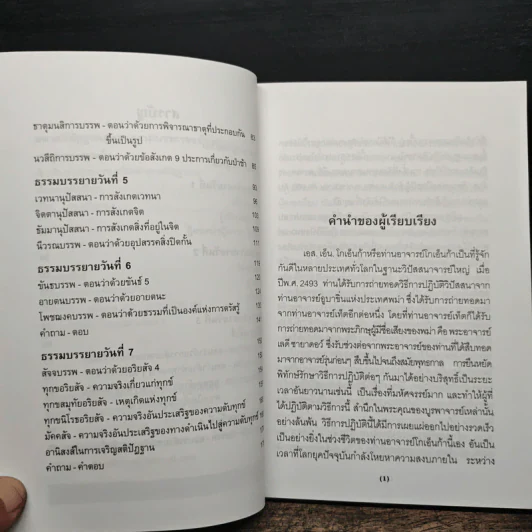 ธาตุมนสิการบรรพ - ตอนว่าด้วยการพิจารณาธาตุที่ประกอบกัน
ขึ้นเป็นรูป
นวสีถิการบรรพ - ตอนว่าด้วยข้อสังเกต 9 ประการเกี่ยวกับป่าช้า
ธรรมบรรยายวันที่ 5
เวทนานุปัสสนา - การสังเกตเวทนา
จิตตานุปัสสนา - การสังเกตจิต
ธัมมานุปัสสนา - การสังเกตสิ่งที่อยู่ในจิต
นีวรณบรรพ - ตอนว่าด้วยอุปสรรคสิ่งปิดกั้น 111
ธรรมบรรยายวันที่ 6 119
ขันธบรรพ - ตอนว่าด้วยขันธ์ 5
อายตนบรรพ - ตอนว่าด้วยอายตนะ
โพชฌงคบรรพ - ตอนว่าด้วยธรรมที่เป็นองค์แห่งการตรัสรู้
คำถาม - ตอบ
ธรรมบรรยายวันที่ 7
สัจจบรรพ - ตอนว่าด้วยอริยสัจ 4
ทุกขอริยสัจ - ความจริงเกี่ยวแก่ทุกข์
ทุกขสมุทัยอริยสัจ - เหตุเกิดแห่งทุกข์
ทุกขนิโรธอริยสัจ - ความจริงอันประเสริฐของความดับทุกข์
มัคคสัจ - ความจริงอันประเสริฐของทางดำเนินไปสู่ความดับทุกข์
อานิสงส์ในการเจริญสติปัฏฐาน
คำถาม - คำตอบ
คำนำของผู้เรียบเรียง
เอส. เอ็น. โกเอ็นก้าหรือท่านอาจารย์โกเอ็นก้าเป็นที่รู้จัก
กันดีในหลายประเทศทั่วโลกในฐานะวิปัสสนาจารย์ใหญ่ เมื่อ
ปีพ.ศ. 2493 ท่านได้รับการถ่ายทอดวิธีการปฏิบัติวิปัสสนาจาก
ท่านอาจารย์อูบาขิ่นแห่งประเทศพม่า ซึ่งได้รับการถ่ายทอดมา
จากท่านอาจารย์เท็ตอีกต่อหนึ่ง โดยที่ท่านอาจารย์เท็ตก็ได้รับ
การถ่ายทอดมาจากพระภิกษุผู้มีชื่อเสียงของพม่า คือ พระอาจารย์
เลดี ซายาดอว์ ซึ่งรับช่วงต่อจากพระอาจารย์ของท่านที่ได้สืบทอด
มาจากอาจารย์รุ่นก่อนๆ สืบขึ้นไปจนถึงสมัยพุทธกาล การยืนหยัด
พิทักษ์รักษาวิธีการปฏิบัติต่อๆ กันมาได้อย่างบริสุทธิ์เป็นระยะ
เวลาอันยาวนานเช่นนี้ เป็นเรื่องที่มหัศจรรย์มาก และทำให้ผู้ที่
ได้ปฏิบัติตามวิธีการนี้ สำนึกในพระคุณของบูรพาจารย์เหล่านั้น
อย่างล้นพ้น วิธีการปฏิบัตินี้ได้มีการเผยแผ่ออกไปอย่างรวดเร็ว
เป็นอย่างยิ่งในช่วงชีวิตของท่านอาจารย์โกเอ็นก้านี้เอง อันเป็น
เวลาที่โลกยุคปัจจุบันกำลังโหยหาความสงบภายใน ระหว่าง
(1)